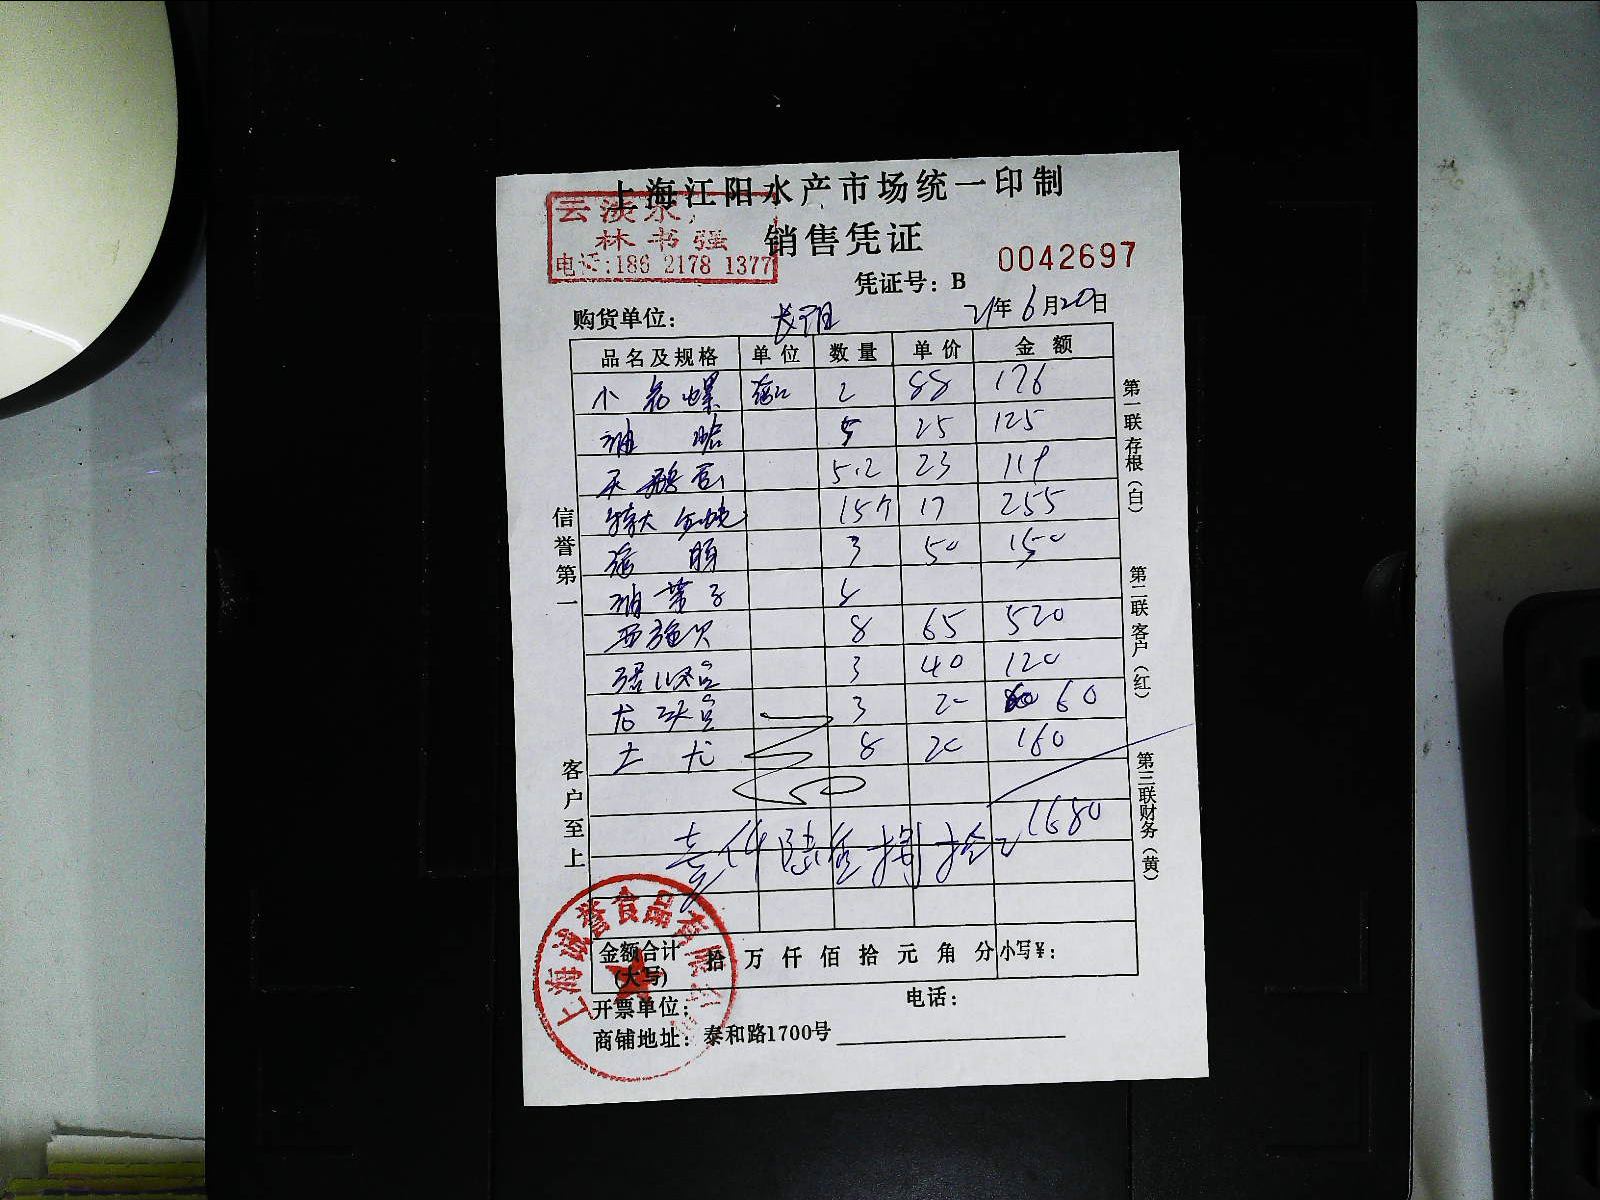 上海江阳水产市场统一印制
云淡水产
林书强
电话:186 2178 1377
销售凭证
凭证号: B 0042697
购货单位: 21年6月20日
品名及规格 单位 数量 单价 金额
小 螺 2 88 176
油 蛤 5 25 125
天鹅蛋 5.2 23 119
特大 15个 17 255
3 50 150
带子
西施贝 8 65 520
3 40 120
3 20 60
8 20 160
1680
壹仟陆佰捌拾元
金额合计(大写) 拾 万 仟 佰 拾 元 角 分 小写¥:
开票单位: 电话:
商铺地址: 泰和路1700号
信誉第一
客户至上
第一联 存根(白)
第二联 客户(红)
第三联 财务(黄)
上海诚誉食品有限公司